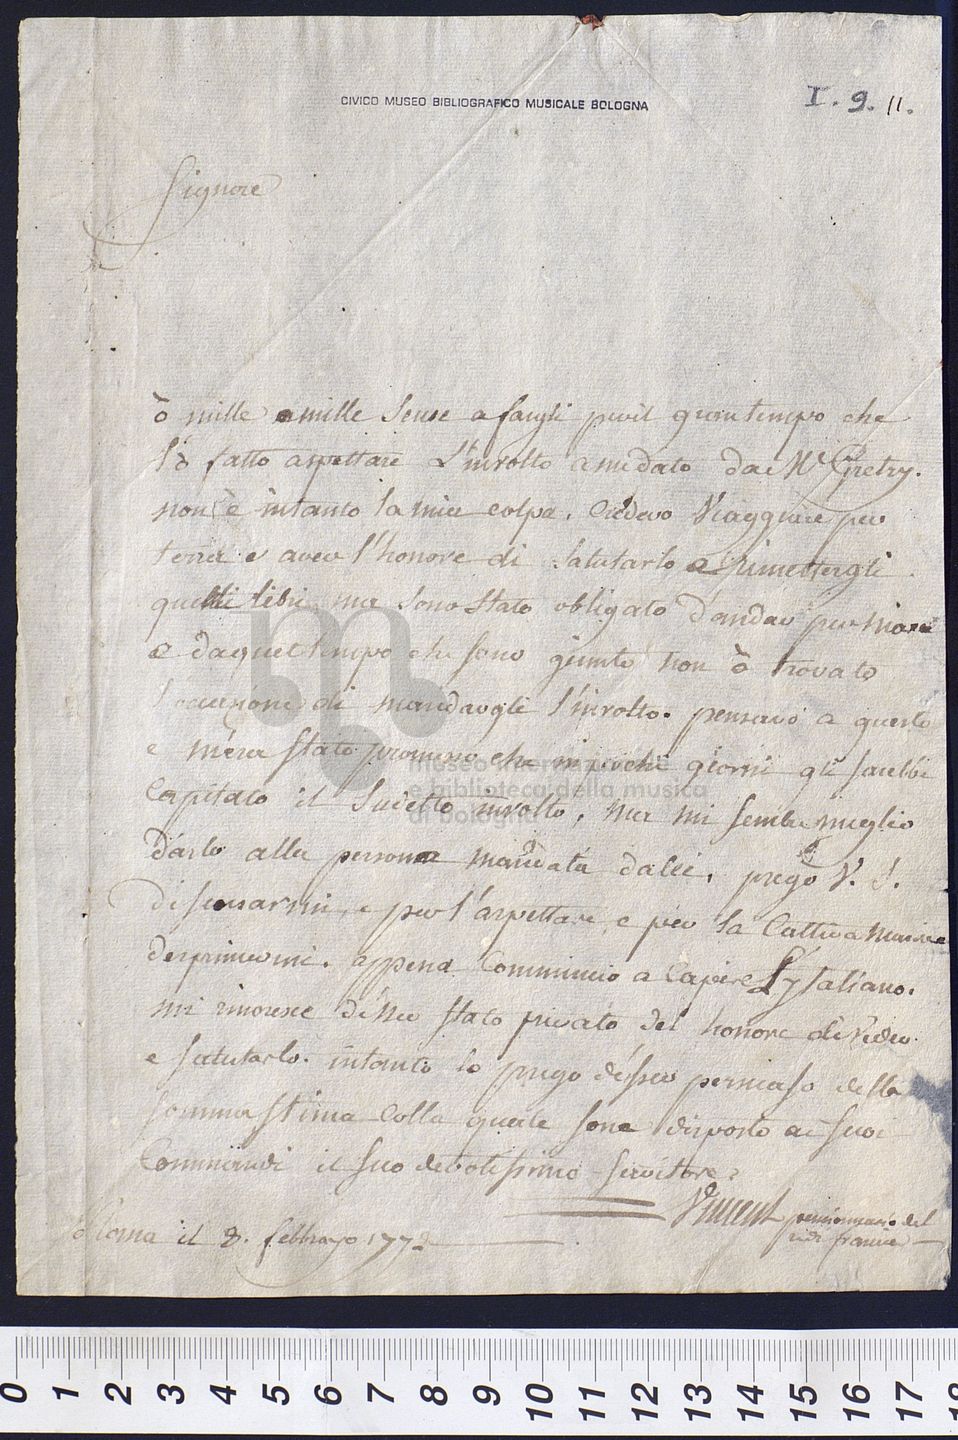 CIVICO MUSEO BIBLIOGRAFICO MUSICALE BOLOGNA
I. 9. 11.
Signore
ò mille e mille scuse a fargli per il gran tempo che
l'ò fatto aspettare l'involto amidato da Mr Gretry.
non è intanto la mia colpa. Credevo viaggiare per
terra e aver l'honore di salutarlo e rimettergli
quelli libri, ma sono stato obligato d'andar per mare
e da quel tempo che sono giunto non ò trovato
l'occasione di mandargli l'involto. pensavo a questo
e m'era stato promesso che in pochi giorni gli sarebbe
Capitato il sudetto involto, ma mi sembra meglio
darlo alla persona mandata da lei. prego V. S.
di scusarmi, e per l'aspettare, e per la Cattiva maniera
d'esprimermi. appena Comminio a Capire l'ytaliano.
mi rincresce d'esser stato privato del honore di veder
e salutarlo. intanto lo prego d'esser persuaso della
somma stima colla quale sono disposto ai suoi
Commandi il suo devotissimo servitore
Vincent pensionnario del
re di francia
Roma il 8. febbrayo 177
museo internazionale
e biblioteca della musica
di bologna
0 1 2 3 4 5 6 7 8 9 10 11 12 13 14 15 16 17 18